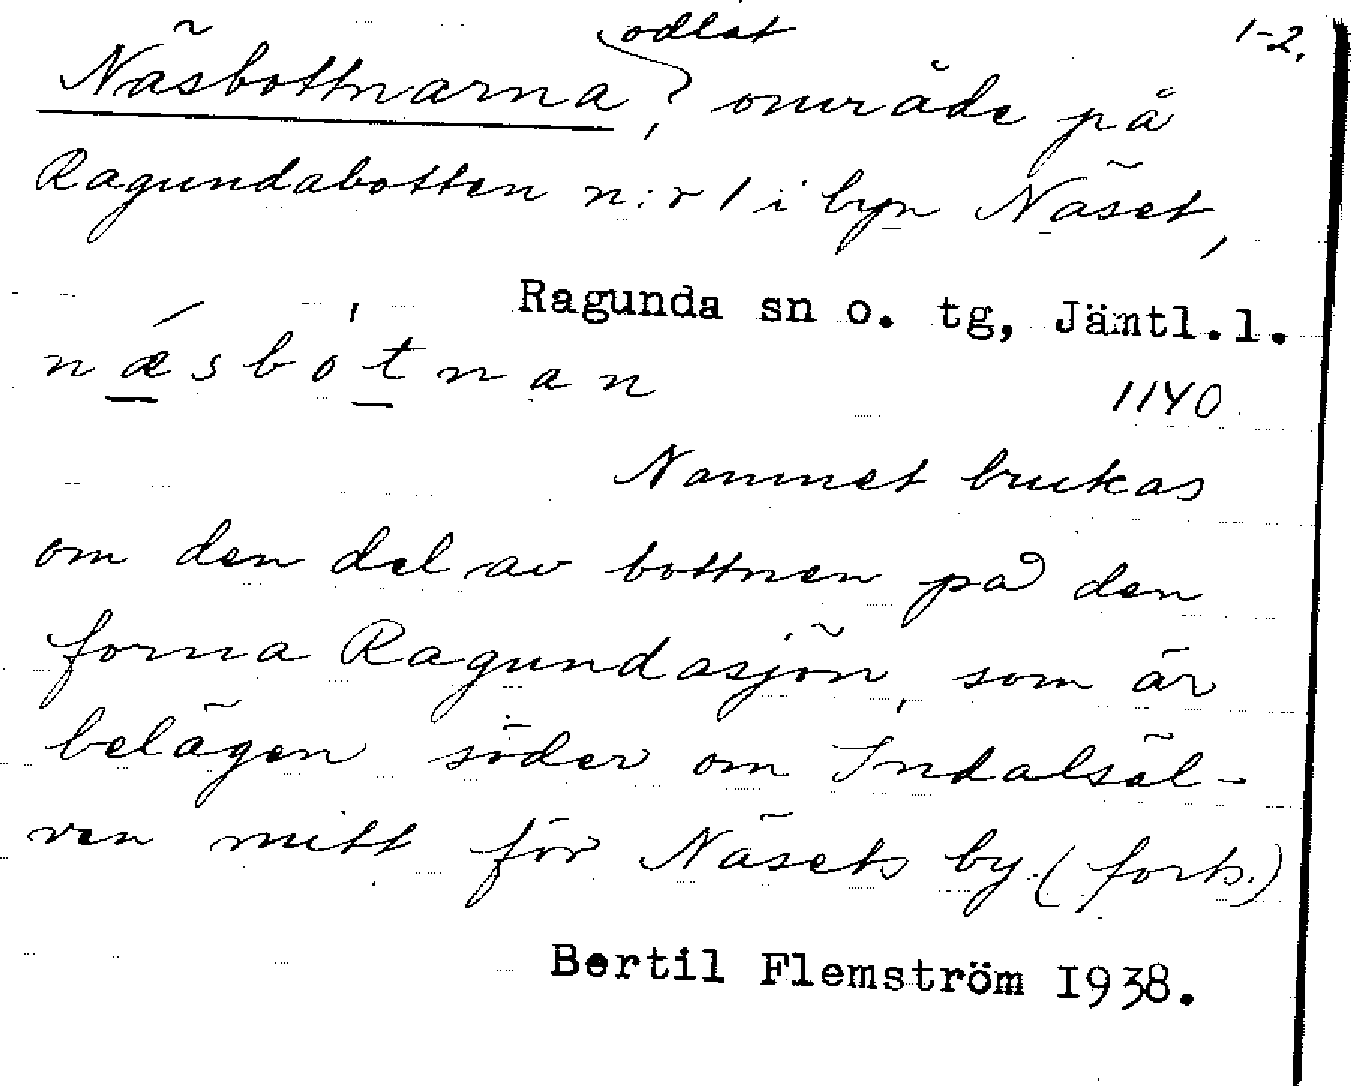 1-2.
Näsbottnarna, odlat område på
Ragundabotten n:r 1 i byn Näset,
Ragunda sn o. tg, Jämtl.l.
nǽsbòtnan
1140
Namnet brukas
om den del av bottnen på den
forna Ragundasjön, som är
belägen söder om Indalsäl-
ven mitt för Näsets by. (forts.)
Bertil Flemström 1938.